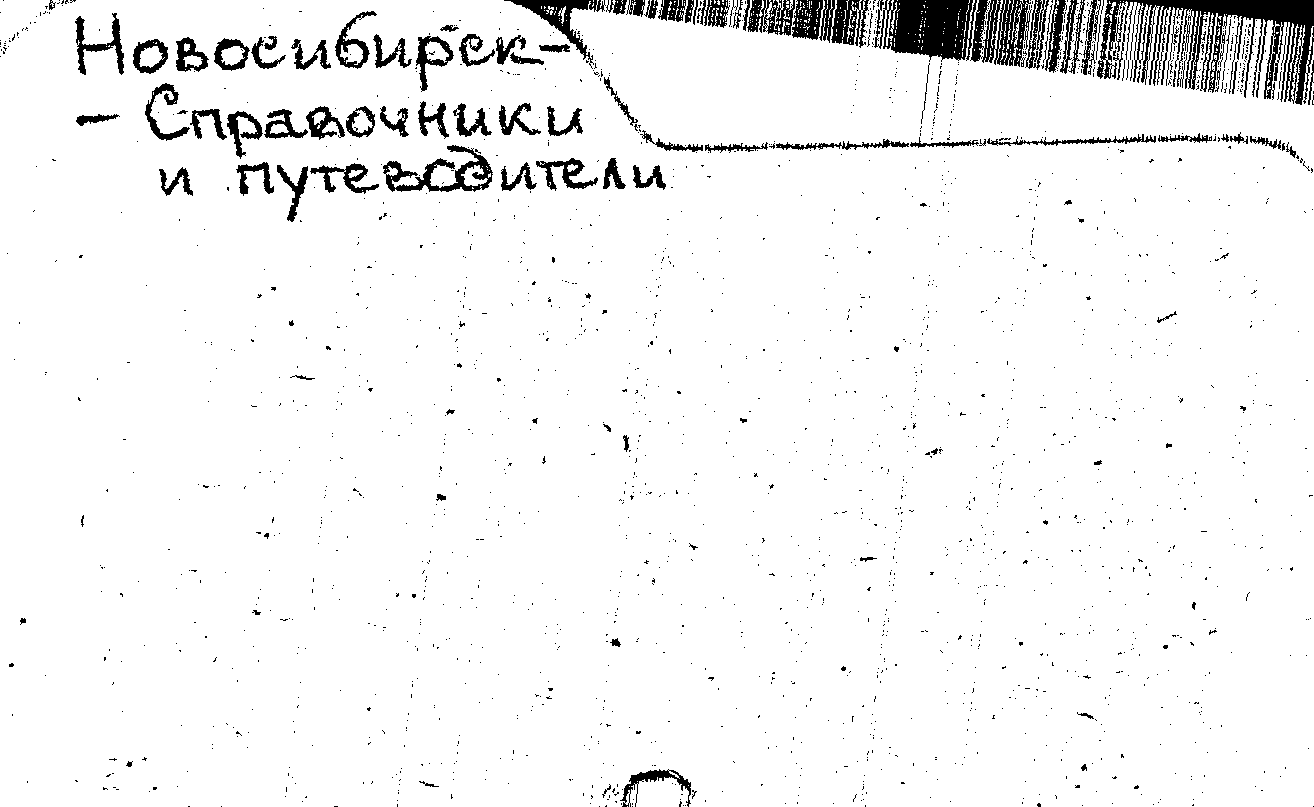 Новосибирск-
- Справочники
и путеводители